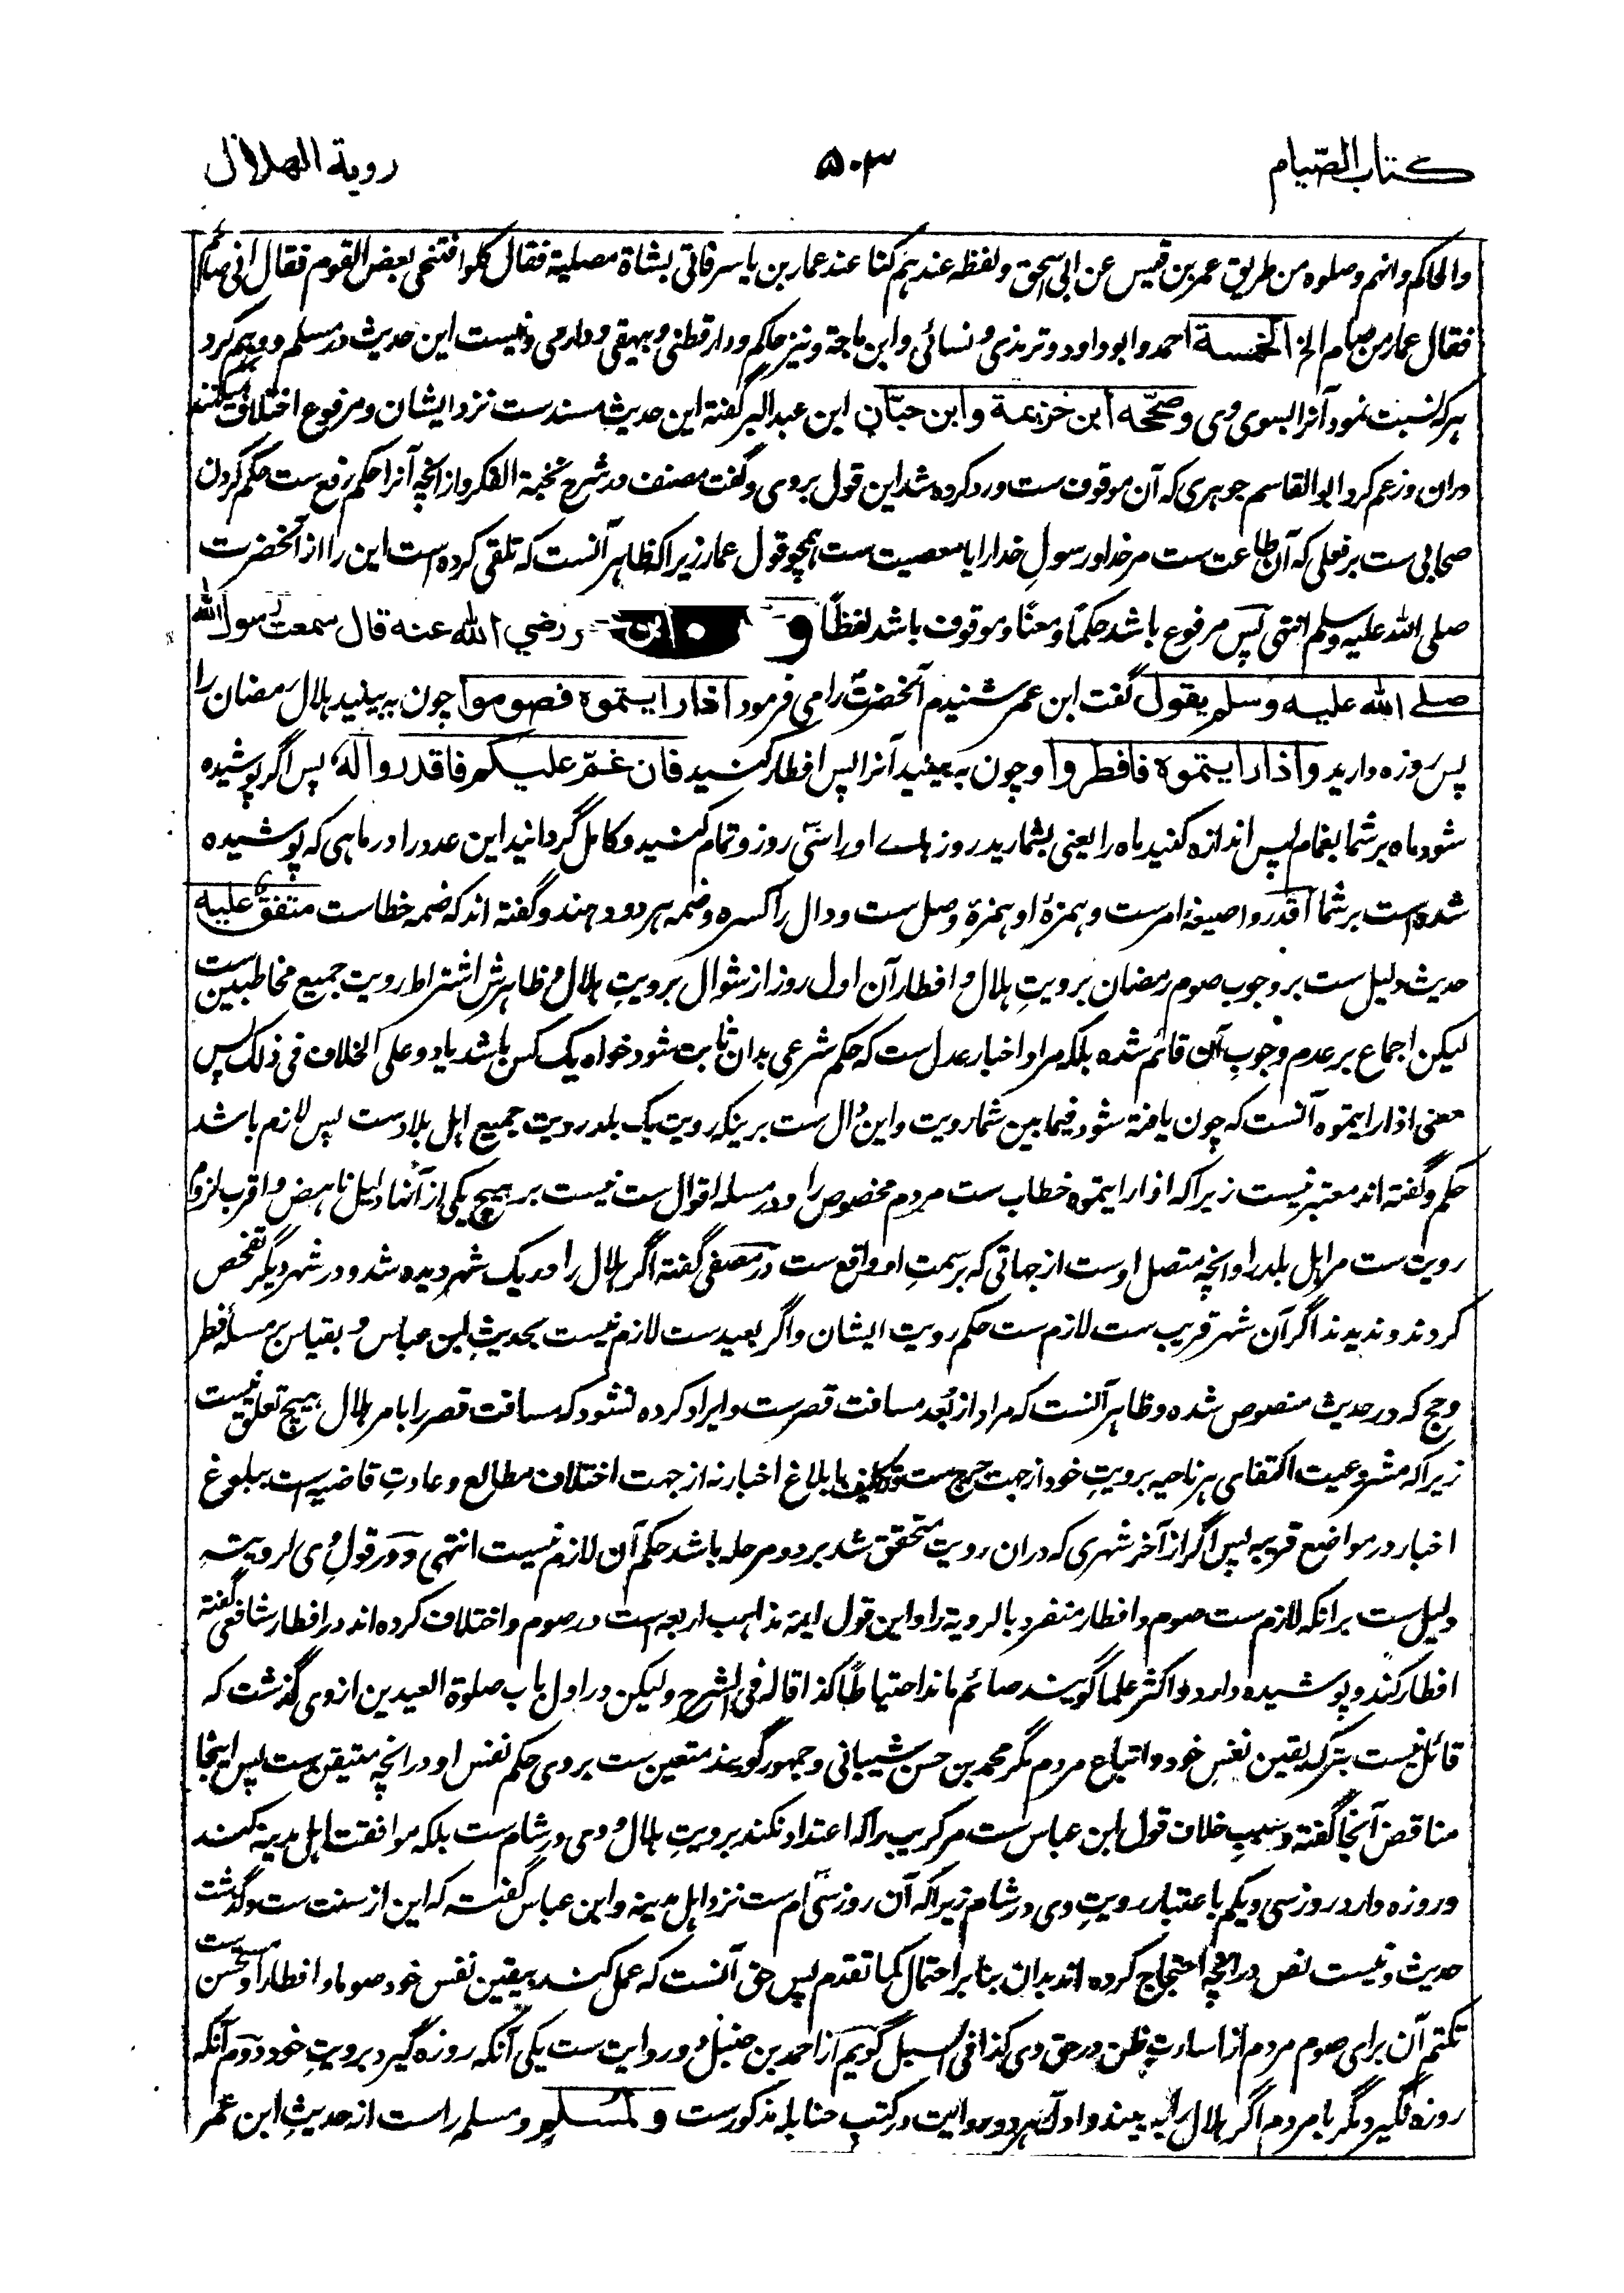 كتاب الصّيام
۵۰۳
روية الهلال
والحاكم وانهم وصلوه من طريق عمر بن قيس عن ابى اسحق ولفظه عندهم كنا عند عمار بن ياسر فاتى بشاة مصلية فقال كلوا فتنحى بعض القوم فقال انى صائم
فقال عمار من صام الخ الخمسة احمد وابو داود وترمذى ونسائى وابن ماجة ونيز حاكم ودارقطنى وبيهقى ودارمى ونيست اين حديث در مسلم ووهم كرد
هركه نسبت نمود آنرا بسوى وى وصحّحه ابن خزيمة وابن حبّان ابن عبدالبر گفته اين حديث مسند ست نزد ايشان ومرفوع اختلاف نميكنند
دران وزعم كرد ابو القاسم جوهرى كه آن موقوف ست ورد كرده شد اين قول بروى وگفت مصنف در شرح نخبة الفكر واز انچه آنرا حكم رفع ست حكم كردن
صحابى ست بر فعلى كه آن طاعت ست مر خدا ورسولِ خدا را يا معصيت ست همچو قول عمار زيراكه ظاهر آنست كه تلقى كرده ست اين را از آنحضرت
صلى الله عليه وسلم انتهى پس مرفوع باشد حكمًا ومعنًا وموقوف باشد لفظًا و ابن رضي الله عنه قال سمعت رسول الله
صلے الله عليه وسلم يقول گفت ابن عمر شنيدم آنحضرت را مى فرمود اذا رايتموه فصوموا چون به بينيد هلال رمضان را
پس روزه داريد واذا رايتموه فافطروا وچون به بينيد آنرا پس افطار كنيد فان غمّ عليكم فاقدروا له پس اگر پوشيده
شود ماه بر شما بغمام پس اندازه كنيد ماه را يعنى بشماريد روزهاے او را سى روز وتمام كنيد وكامل گردانيد اين عدد را در ماهى كه پوشيده
شده ست بر شما اقدروا صيغهٔ امر ست وهمزهٔ او همزهٔ وصل ست ودال را كسره وضمه هر دو دهند وگفته اند كه ضمه خطاست متفق عليه
حديث دليل ست بر وجوب صوم رمضان برويتِ هلال وافطار آن اول روز از شوال برويتِ هلال وظاهرش اشتراط رويت جميع مخاطبين ست
ليكن اجماع بر عدم وجوب آن قائم شده بلكه مراد اخبار عدل ست كه حكم شرعى بدان ثابت شود خواه يک كس باشد يا دو على الخلاف فى ذلک پس
معنى اذا رايتموه آنست كه چون يافته شود فيما بين شما رويت واين دال ست برينكه رويت يک بلد رويت جميع اهل بلاد ست پس لازم باشد
حكم وگفته اند معتبر نيست زيراكه اذا رايتموه خطاب ست مردم مخصوص را ودر مسله اقوال ست نيست بر هيچ يكى از آنها دليل ناهض واقرب لزوم
رويت ست مر اهل بلد را وانچه متصل اوست از جهاتى كه بر سمتِ او واقع ست در مصفى گفته اگر هلال را در يک شهر ديده شد ودر شهر ديگر تفحص
كردند ونديدند اگر آن شهر قريب ست لازم ست حكم رويت ايشان واگر بعيد ست لازم نيست بحديثِ ابن عباس وبقياس بر مسئله فطر
وحج كه در حديث منصوص شده وظاهر آنست كه مراد از بُعد مسافت قصر ست وايراد كرده نشود كه مسافت قصر را با مر هلال هيچ تعلق نيست
زيراكه مشروعيت اكتفاى هر ناحيه برويتِ خود از جهت حرج ست وتكليف بابلاغ اخبار نه از جهت اختلاف مطالع وعادتِ قاضيه ست ببلوغ
اخبار در مواضع قريبه پس اگر از آخر شهرى كه دران رويت متحقق شد بر دو مرحله باشد حكم آن لازم نيست انتهى ودر قولِ وى لرويته
دليل ست برانكه لازم ست صوم وافطار منفرد بالروية را واين قول ايمهٔ مذاهب اربعه ست در صوم واختلاف كرده اند در افطار شافعى گفته
افطار كند وپوشيده دارد واكثر علما گويند صائم ماند احتياطًا كذا قاله فى الشرح وليكن در اول باب صلوة العيدين از وى گذشت كه
قائل نيست بترک يقين نفسِ خود واتباع مردم مگر محمد بن حسن شيبانى وجمهور گويند متعين ست بروى حكم نفس او در انچه متيقن ست پس اينجا
مناقض آنجا گفته وسببِ خلاف قول ابن عباس ست مر كريب را كه اعتداد نكند برويتِ هلال ووى در شام ست بلكه موافقت اهل مدينه كند
وروزه دارد روز سى ويكم با عتبار رويتِ وى در شام زيراكه آن روز سى ام ست نزد اهل مدينه وابن عباس گفت كه اين از سنت ست وگذشت
حديث ونيست نص در انچه احتجاج كرده اند بدان بنا بر احتمال كما تقدم پس حق آنست كه عمل كند بيقين نفس خود صوما وافطارا ومستحسن ست
تكتم آن براى صوم مردم از اساءتِ ظن در حق وى كذا فى السبل گويم از احمد بن حنبل دو روايت ست يكى آنكه روزه گيرد برويتِ خود دوم آنكه
روزه نگيرد مگر با مردم اگر هلال را به بيند وادلهٔ هر دو روايت در كتبِ حنابله مذكورست ولمسلم ومسلم راست از حديثِ ابن عمر